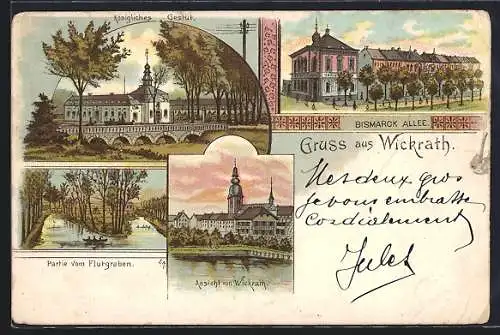 Königliches Gestüt.
BISMARCK ALLEE.
Gruss aus Wickrath.
Mes deux gros
je vous embrasse
Cordialement
Jules
Partie vom Flutgraben.
Ansicht von Wickrath.